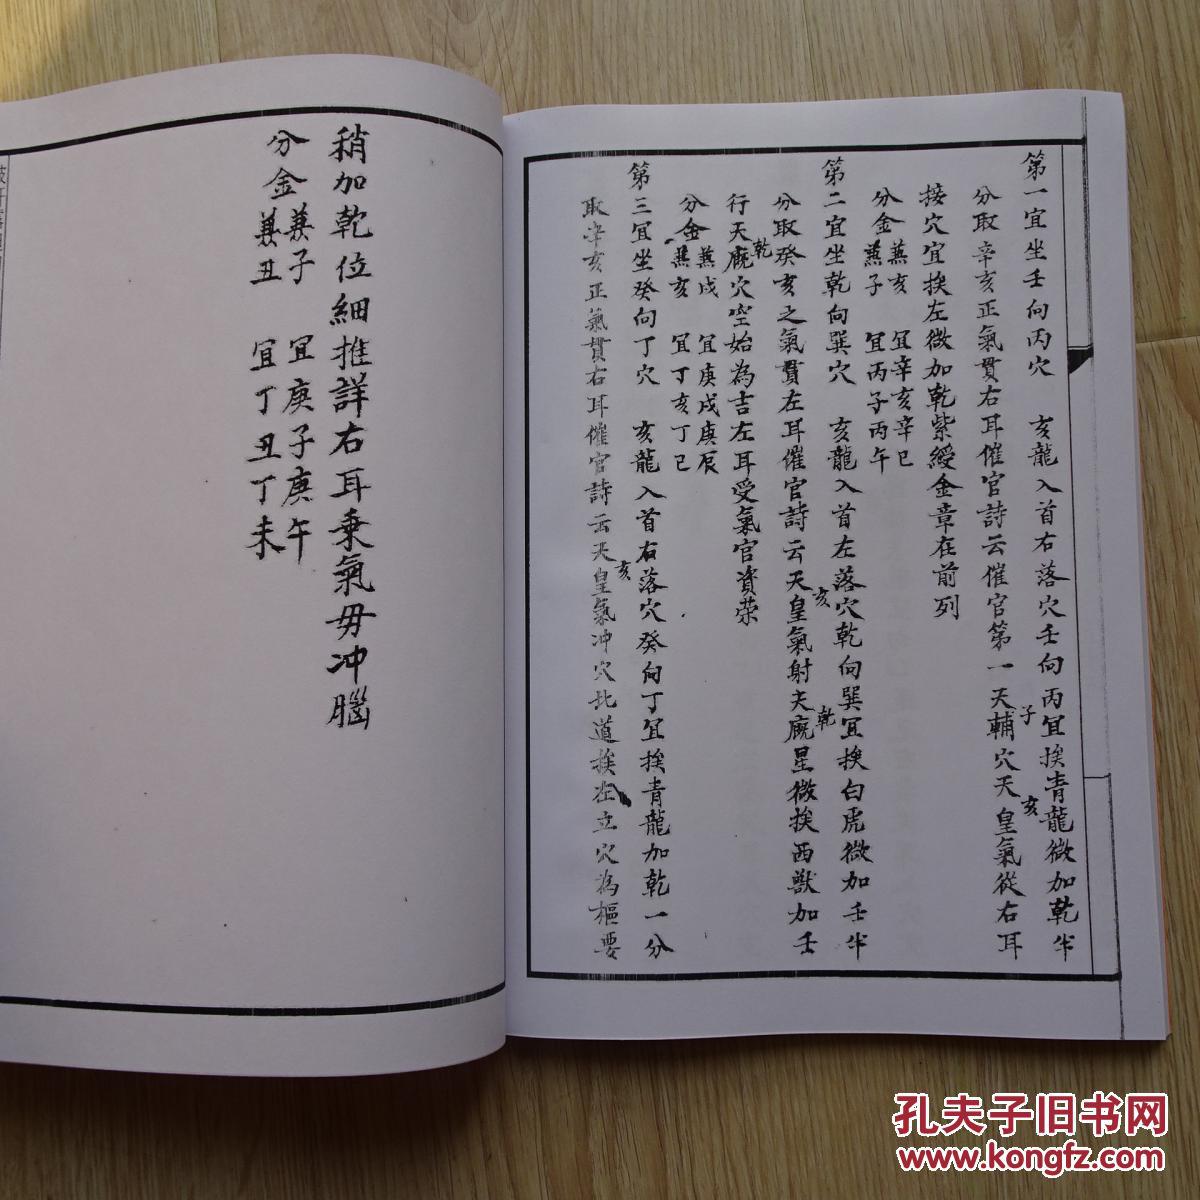 第一宜坐壬向丙穴　亥龍入首右落穴壬向丙宜挨青龍微加乾半
分取辛亥正氣貫右耳催官詩云催官第一天輔穴天皇氣從右耳
子
亥
接穴宜挨左微加乾紫綬金章在前列
分金蒹亥　宜辛亥辛巳
蒹子　宜丙子丙午
第二宜坐乾向巽穴　亥龍入首左落穴乾向巽宜挨白虎微加壬半
分取癸亥之氣貫左耳催官詩云天皇氣射天廄星微挨西獸加壬
亥
乾
行天廄穴空始為吉左耳受氣官資荣
乾
分金蒹戌　宜庚戌庚辰
蒹亥　宜丁亥丁巳
第三宜坐癸向丁穴　亥龍入首右落穴癸向丁宜挨青龍加乾一分
取辛亥正氣貫右耳催官詩云天皇氣冲穴北道挨左立穴為樞要
亥
稍加乾位細推詳右耳乘氣毋冲腦
分金蒹子　宜庚子庚午
蒹丑　宜丁丑丁未
孔夫子旧书网
www.kongfz.com